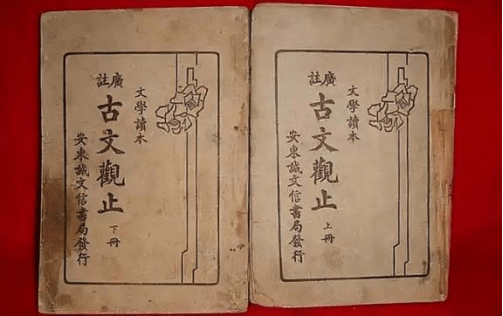 文學讀本
廣註
古文觀止
上冊
安東誠文信書局發行
文學讀本
廣註
古文觀止
下冊
安東誠文信書局發行